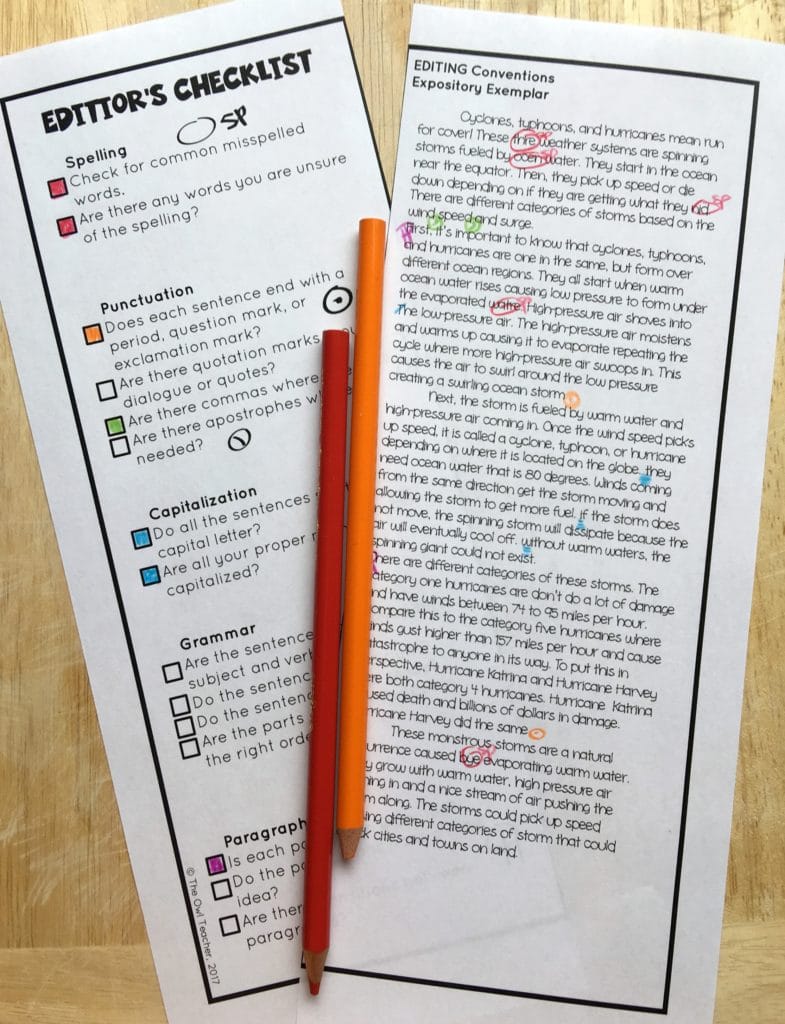 EDITTOR'S CHECKLIST
SP
Spelling
Check for common misspelled
words.
Are there any words you are unsure
of the spelling?
Punctuation
Does each sentence end with a
period, question mark, or
exclamation mark?
Are there quotation marks
dialogue or quotes?
Are there commas where
Are there apostrophes
needed?
Capitalization
Do all the sentences
capital letter?
Are all your proper
capitalized?
Grammar
Are the sentence
subject and
Do the
Do the
Are the parts
the right
Paragraph
Is each
Do the
idea?
Are
© The Owl Teacher, 2017
EDITING Conventions
Expository Exemplar
Cyclones, typhoons, and hurricanes mean run
for cover! These thre weather systems are spinning
storms fueled by ocen water. They start in the ocean
near the equator. Then, they pick up speed or die
down depending on if they are getting what they nid.
There are different categories of storms based on the
wind speed and surge.
First, it's important to know that cyclones, typhoons,
and hurricanes are one in the same, but form over
different ocean regions. They all start when warm
ocean water rises causing low pressure to form under
the evaporated watre. High-pressure air shoves into
The low-pressure air. The high-pressure air moistens
and warms up causing it to evaporate repeating the
cycle where more high-pressure air swoops in. This
causes the air to swirl around the low pressure
creating a swirling ocean storm
Next, the storm is fueled by warm water and
high-pressure air coming in. Once the wind speed picks
up speed, it is called a cyclone, typhoon, or hurricane
depending on where it is located on the globe. they
need ocean water that is 80 degrees. Winds coming
from the same direction get the storm moving and
allowing the storm to get more fuel. if the storm does
not move, the spinning storm will dissipate because the
air will eventually cool off. without warm waters, the
spinning giant could not exist.
here are different categories of these storms. The
ategory one hurricanes are don't do a lot of damage
nd have winds between 74 to 95 miles per hour.
ompare this to the category five hurricanes where
inds gust higher than 157 miles per hour and cause
atastrophe to anyone in its way. To put this in
rspective, Hurricane Katrina and Hurricane Harvey
ere both category 4 hurricanes. Hurricane Katrina
used death and billions of dollars in damage.
rricane Harvey did the same
These monstrous storms are a natural
urrence caused bye evaporating warm water.
y grow with warm water, high pressure air
ing in and a nice stream of air pushing the
m along. The storms could pick up speed
ing different categories of storm that could
k cities and towns on land.